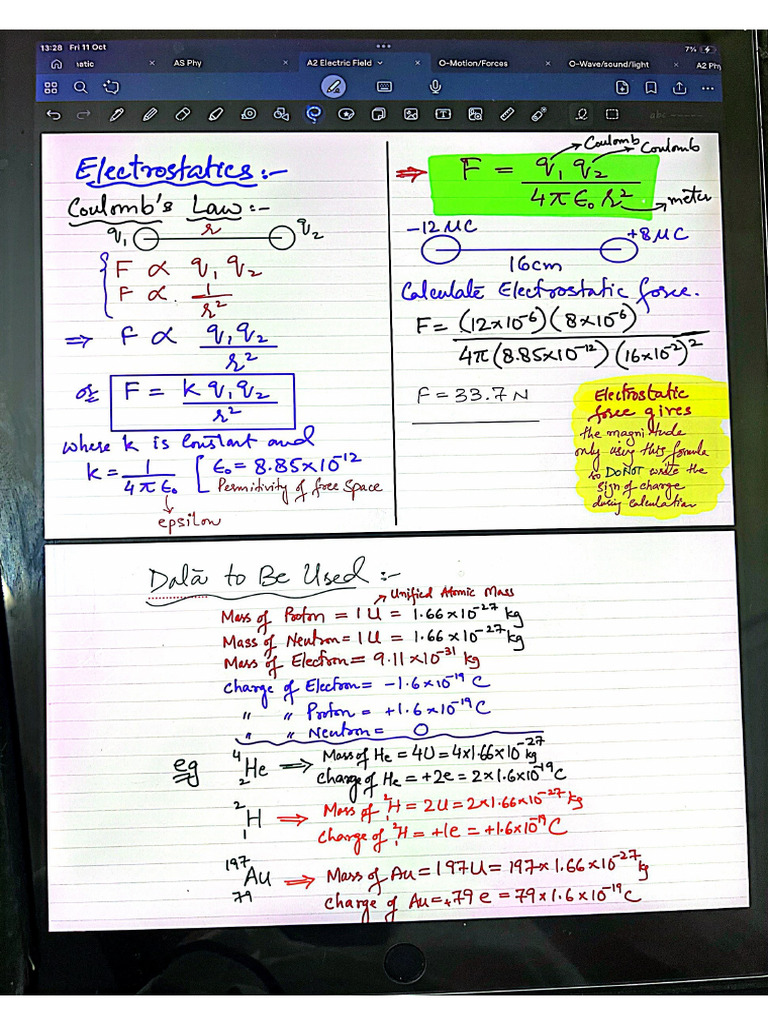 13:28 Fri 11 Oct
7%
natic
AS Phy
A2 Electric Field
O-Motion/Forces
O-Wave/sound/light
A2 Ph
abc
Electrostatics:-
Coulomb's Law:-
q₁ r q₂
F ∝ q₁ q₂
F ∝ 1/r²
⇒ F ∝ q₁q₂/r²
or F = k q₁q₂/r²
where k is constant and
k = 1/4πϵ₀ [ϵ₀ = 8.85×10⁻¹²
Permitivity of free space
epsilon
⇒ F = q₁ q₂/4πϵ₀ r²
Coulomb
Coulomb
meter
-12μC +8μC
16cm
Calculate Electrostatic force.
F = (12×10⁻⁶)(8×10⁻⁶)/4π(8.85×10⁻¹²)(16×10⁻²)²
F = 33.7N
Electrostatic
force gives
the magnitude
only using this formula
so DO NOT write the
sign of charge
during calculation
Data to Be Used:-
Unified Atomic Mass
Mass of Proton = 1U = 1.66×10⁻²⁷ kg
Mass of Neutron = 1U = 1.66×10⁻²⁷ kg
Mass of Electron = 9.11×10⁻³¹ kg
Charge of Electron = -1.6×10⁻¹⁹ C
" " Proton = +1.6×10⁻¹⁹ C
" " Neutron = 0
eg ⁴₂He ⇒ Mass of He = 4U = 4×1.66×10⁻²⁷ kg
Charge of He = +2e = 2×1.6×10⁻¹⁹ C
²₁H ⇒ Mass of ²₁H = 2U = 2×1.66×10⁻²⁷ kg
Charge of ²₁H = +1e = +1.6×10⁻¹⁹ C
¹⁹⁷₇₉Au ⇒ Mass of Au = 197U = 197×1.66×10⁻²⁷ kg
Charge of Au = +79e = 79×1.6×10⁻¹⁹ C